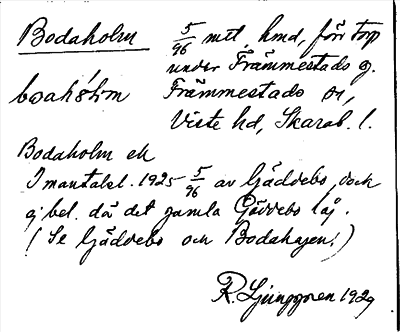 Bodaholm 5/96 mtl, hmd, förr torp
under Främmestads g.
boahó̀łm Främmestads sn,
Viste hd, Skarab. l.
Bodaholm ek
I mantalsl. 1925 5/96 av Gäddebo, och
ej bel. då det gamla Gäddebo låg.
(Se Gäddebo och Bodahagen!)
R. Ljunggren 1929